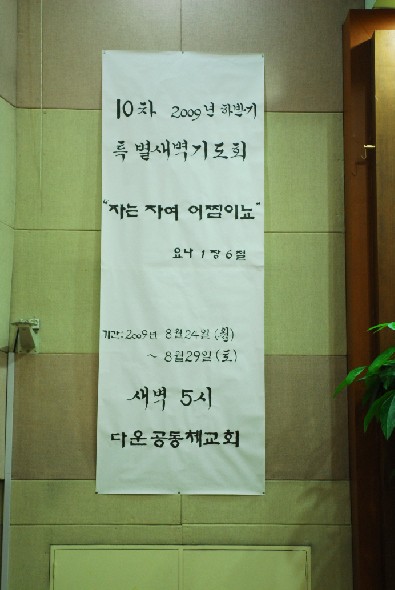 10차 2009년 하반기
특별새벽기도회
"자는 자여 어찜이뇨"
요나 1장 6절
기간: 2009년 8월24일(월)
~ 8월29일(토)
새벽 5시
다운공동체교회